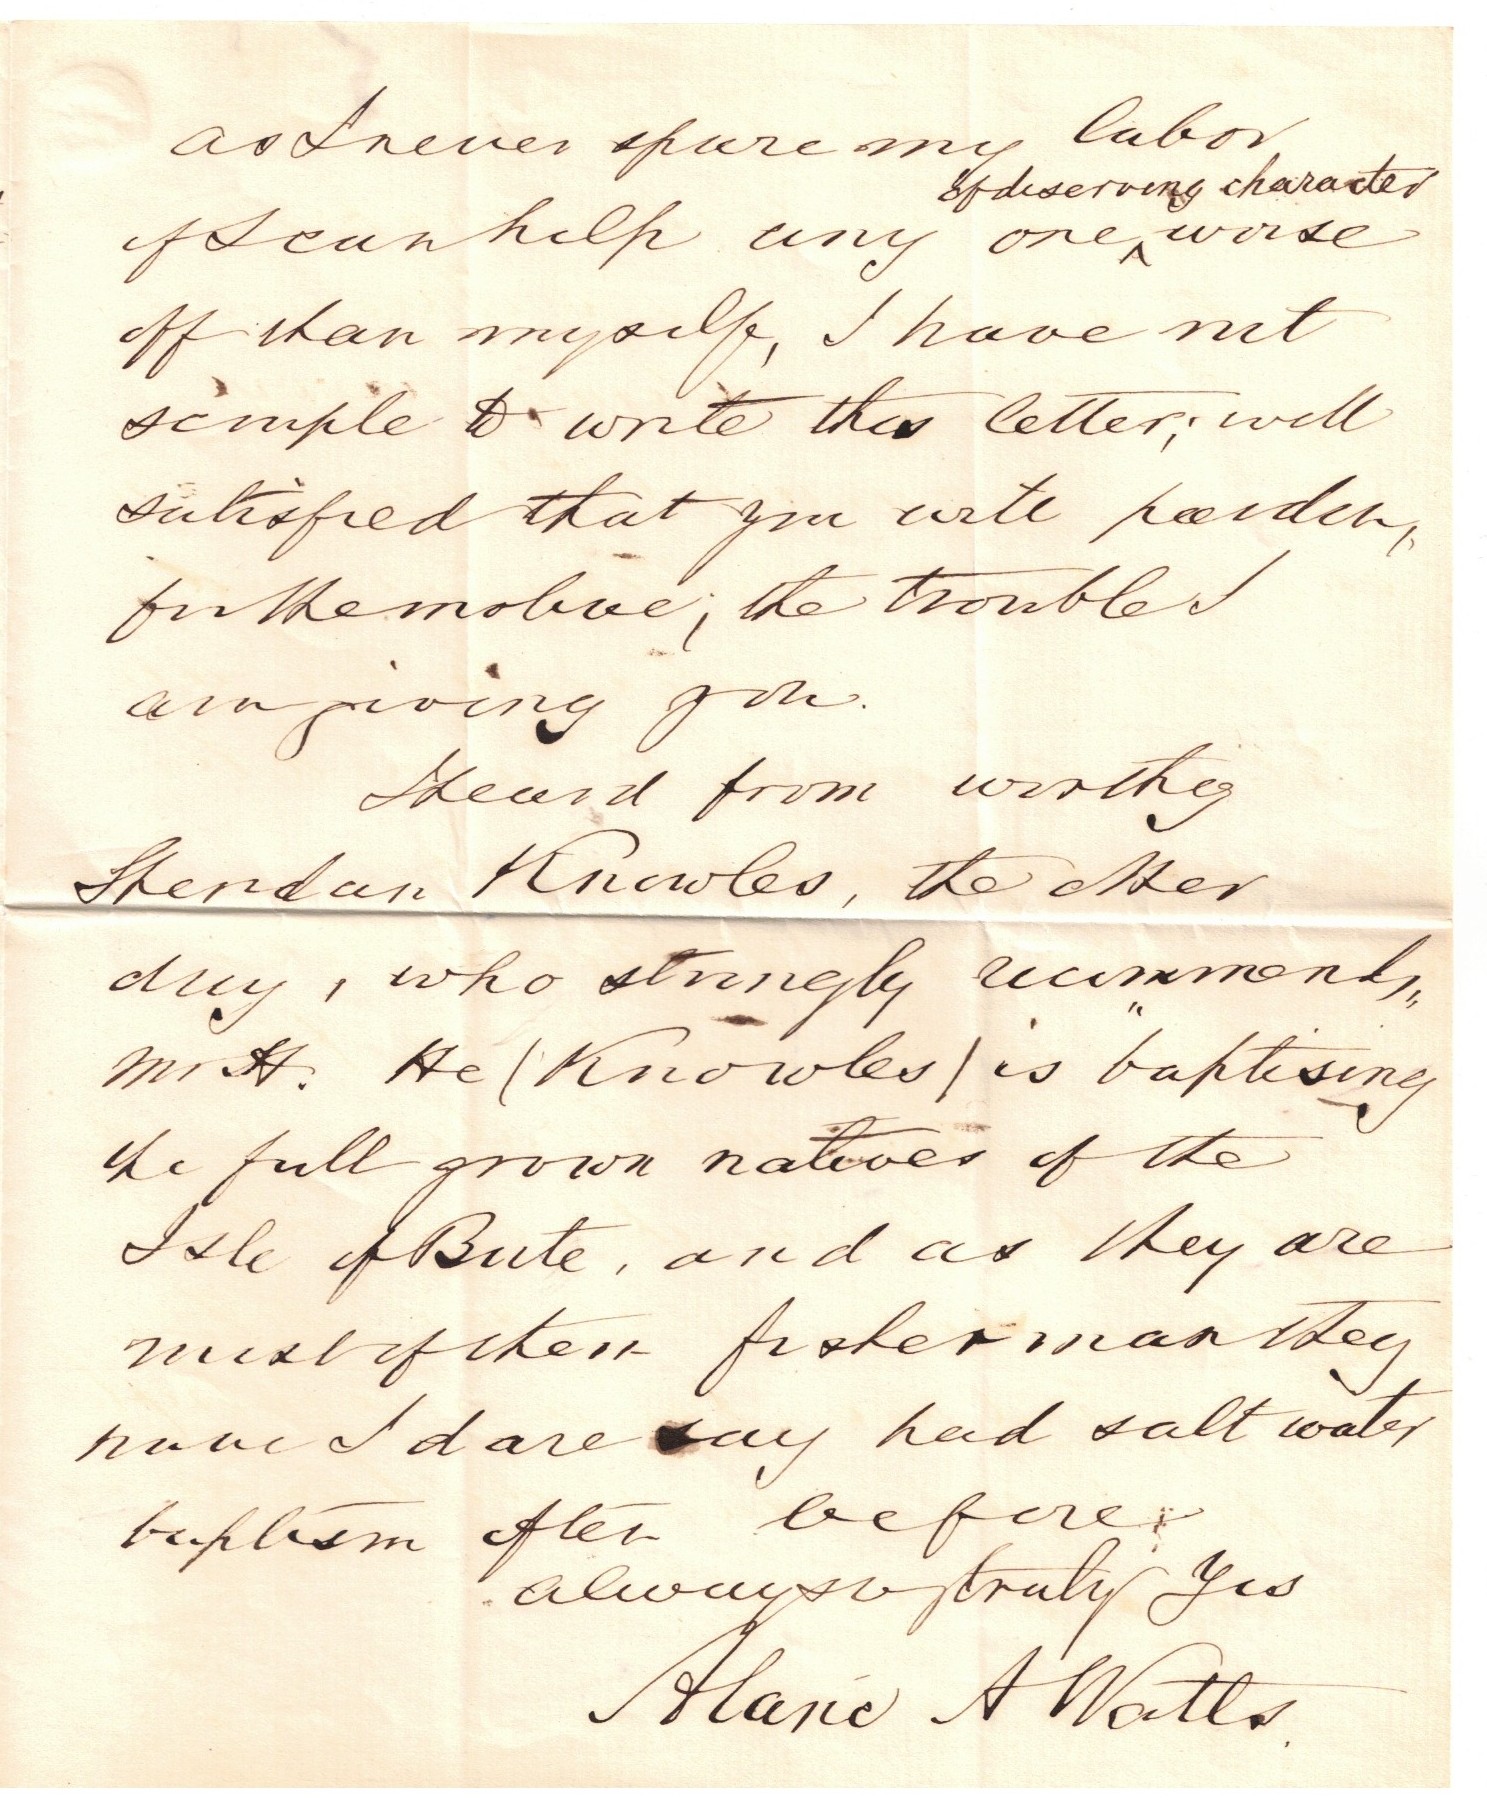 as I never spare my labor
of deserving character
if I can help any one ‸ worse
off than myself, I have not
scruple to write this letter; well
satisfied that you will pardon,
for the motive, the trouble I
am giving you.
I heard from worthy
Sheridan Knowles, the other
day, who strongly recommends,
Mr H. He (Knowles) is "baptising
the full grown natives of the
Isle of Bute, and as they are
most of them fisherman they
have I dare say had salt water
baptism often before.
always truly Yrs
Alaric A Watts.